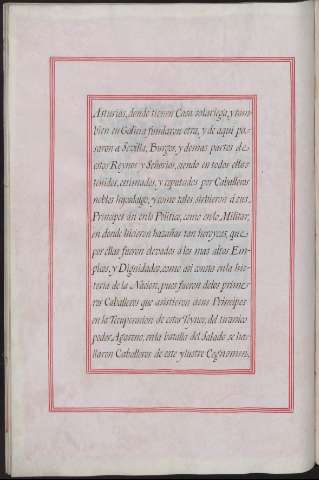 Asturias, donde tienen Casa solariega, y tam
bien en Galicia fundaron otra, y de aqui pa-
saron a Sevilla, Burgos, y demas partes de
estos Reynos y Señorios, siendo en todos ellos
tenidos, estimados, y reputados por Caballeros
nobles hijosdalgo, y como tales sirbieron á sus
Principes asi en lo Politico, como en lo Militar,
en donde hicieron hazañas tan heroycas, que
por ellas fueron elevados á los mas altos Em-
pleos, y Dignidades, como asi consta en la his-
toria de la Nacion, pues fueron delos prime-
ros Caballeros que asistieron asus Principes
en la recuperacion de estos Reynos, del tiranico
poder Agareno, en la batalla del Salado se ha-
llaron Caballeros de este ylustre Cognomen,